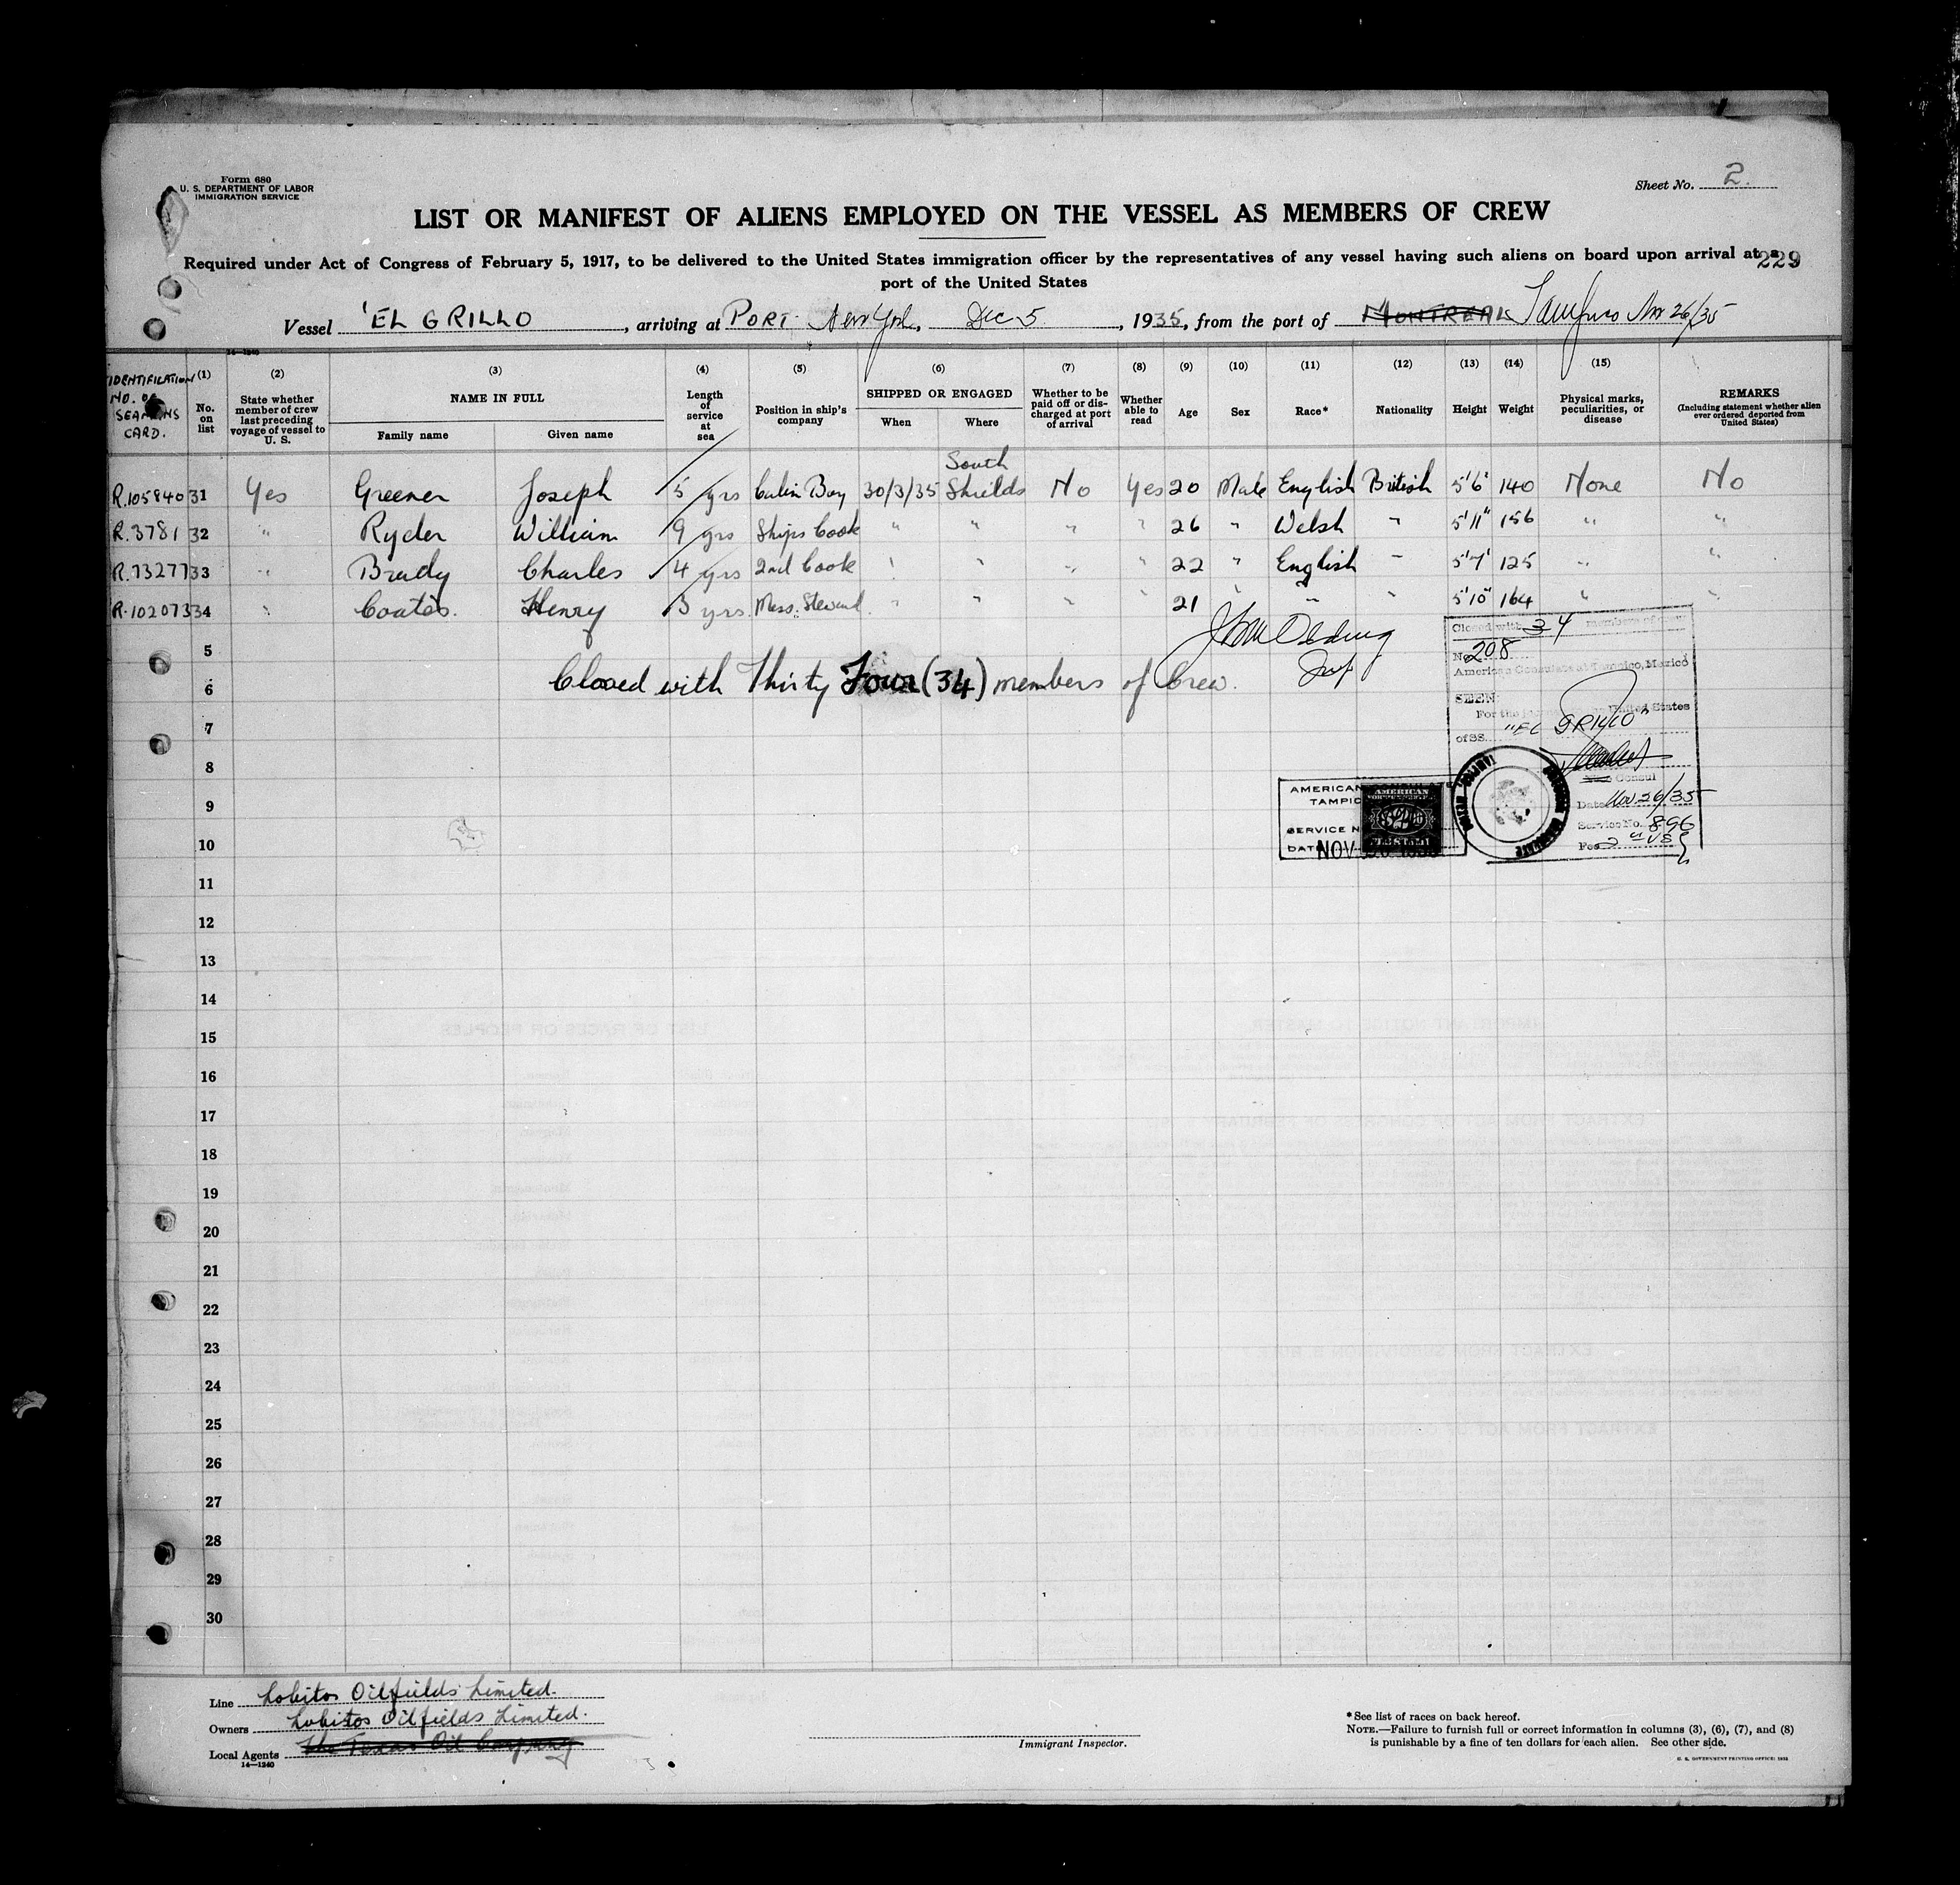 Form 680
U. S. DEPARTMENT OF LABOR
IMMIGRATION SERVICE
Sheet No. 2.
LIST OR MANIFEST OF ALIENS EMPLOYED ON THE VESSEL AS MEMBERS OF CREW
Required under Act of Congress of February 5, 1917, to be delivered to the United States immigration officer by the representatives of any vessel having such aliens on board upon arrival at a
229
port of the United States
Vessel 'EL GRILLO, arriving at PORT New York, Dec 5, 1935, from the port of MONTREAL Tampico Nov 26/35
14—1240
IDENTIFICATION NO. OF SEAMANS CARD.
(1) No. on list
(2) State whether member of crew last preceding voyage of vessel to U. S.
(3) NAME IN FULL
Family name Given name
(4) Length of service at sea
(5) Position in ship's company
(6) SHIPPED OR ENGAGED
When Where
(7) Whether to be paid off or discharged at port of arrival
(8) Whether able to read
(9) Age
(10) Sex
(11) Race*
(12) Nationality
(13) Height
(14) Weight
(15) Physical marks, peculiarities, or disease
REMARKS
(Including statement whether alien ever ordered deported from United States)
R.105840 31 Yes Greener Joseph 5 yrs Cabin Boy 30/3/35 South Shields No Yes 20 Male English British 5'6" 140 None No
R.3781 32 " Ryder William 9 yrs Ships Cook " " " " 26 " Welsh " 5'11" 156 " "
R.73277 33 " Brady Charles 4 yrs 2nd Cook " " " " 22 " English " 5'7" 125 " "
R.102073 34 " Coates. Henry 3 yrs. Mess. Steward. " " " " 21 " " " 5'10" 164 " "
5
6 Closed with Thirty Four (34) members of Crew.
Closed with 34 members of crew
No. 208
American Consulate at Tampico, Mexico
SEEN:
For the United States
of SS. "EL GRILLO"
Consul
Date Nov 26/35
Service No. 896
Fee
AMERICAN
TAMPIC
SERVICE N
DATE NOV
AMERICAN
7
8
9
10
11
12
13
14
15
16
17
18
19
20
21
22
23
24
25
26
27
28
29
30
Line Lobitos Oilfields Limited.
Owners Lobitos Oilfields Limited.
Local Agents The Texas Oil Company
14—1240
Immigrant Inspector.
*See list of races on back hereof.
NOTE.—Failure to furnish full or correct information in columns (3), (6), (7), and (8)
is punishable by a fine of ten dollars for each alien. See other side.